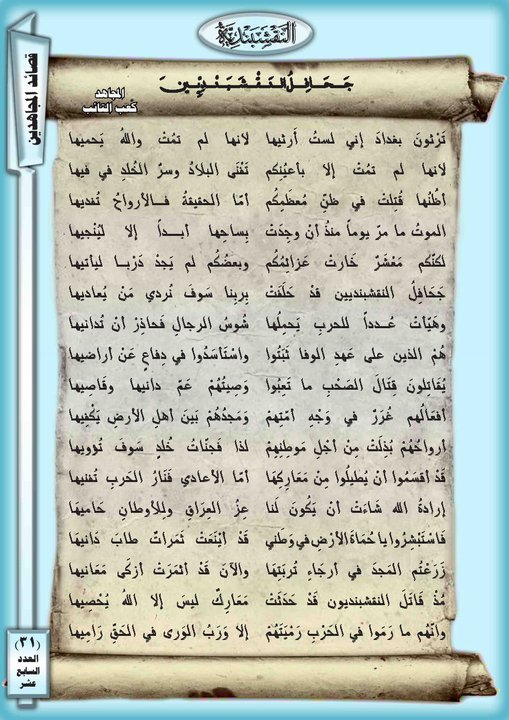 النقشبندية
قصائد المجاهدين
جَحَافِلُ النَقْشَبَنْدِيّينَ
المجاهد
كعب التائب
تَرْثونَ بغدادَ إني لستُ أرثيها لانها لم تمُتْ واللهُ يَحميها
لانها لم تمُتْ إلا بأعيُنكم تفْنَى البلادُ وسرُّ الخُلدِ في فيها
أظُنُّها قُتِلتْ في ظنّ مُعظَمِكُم أمّا الحقيقةُ فـالأرواحُ تُفديها
الموتُ ما مرّ يوماً منذُ أن وجِدَتْ بِساحِها أبـداً إلا ليُنْجيها
لكنّكم مَعْشَرٌ خَارتْ عَزائِمُكُم وبعضُكُم لم يَجدْ دَرْبـا ليأتيها
جَحَافِلُ النقشبنديين قدْ حَلَفَتْ بِربنا سَوفَ نُردي مَن يُعاديها
وهَيّأتْ عُـدداً للحربِ يَحمِلُها شُوسُ الرجالِ فحاذِرْ أنْ تُدانيها
هُمُ الذين على عَهدِ الوفا ثبَتُوا واسْتَأسَدُوا في دِفاعٍ عَنْ أراضيها
يُقاتِلونَ قِتَالَ الصّحْبِ ما تَعِبُوا وَصِيتُهُمْ عَمّ دانيها وقاصِيها
أفعَالُهُم غُرَرٌ في وَجْهِ أمّتِهِم وَمَجدُهُمْ بَينَ أهلِ الأرضِ يَكْفِيها
أرواحُهُمْ بُذِلَتْ مِن أجْلِ مَوطِنِهِمْ لذا فجَنّاتُ خُلدٍ سَوفَ تُؤويها
قدْ أقسَمُوا أن يُطيلُوا مِنْ مَعَارِكِها أمّا الأعادي فَنَارُ الحَربِ تُفنيها
إرادةُ الله شاءَتْ أن يَكُونَ لَنا عِزُ العِرَاقِ ولِلأوطانِ حَامِيها
فاسْتَبْشِرُوا يا حُمَاةَ الأرْضِ في وَطَني قدْ أيْنَعَتْ ثَمراتٌ طابَ دَانِيها
زَرَعْتُم المَجدَ في أرجَاءِ تُربَتِها والآنَ قَدْ أثمَرَتْ أزكَى مَعَانِيها
مُذْ قاتَلَ النقشبنديونَ قدْ حَدَثَتْ مَعَارِكٌ ليسَ إلا اللهُ يُحْصِيها
وانّهم ما رَمَوا في الحَرْبِ رَمْيَتَهُمْ إلا وَرَبُ الوَرى في الحَقّ رَامِيها
(٣١)
العدد
السابع
عشر